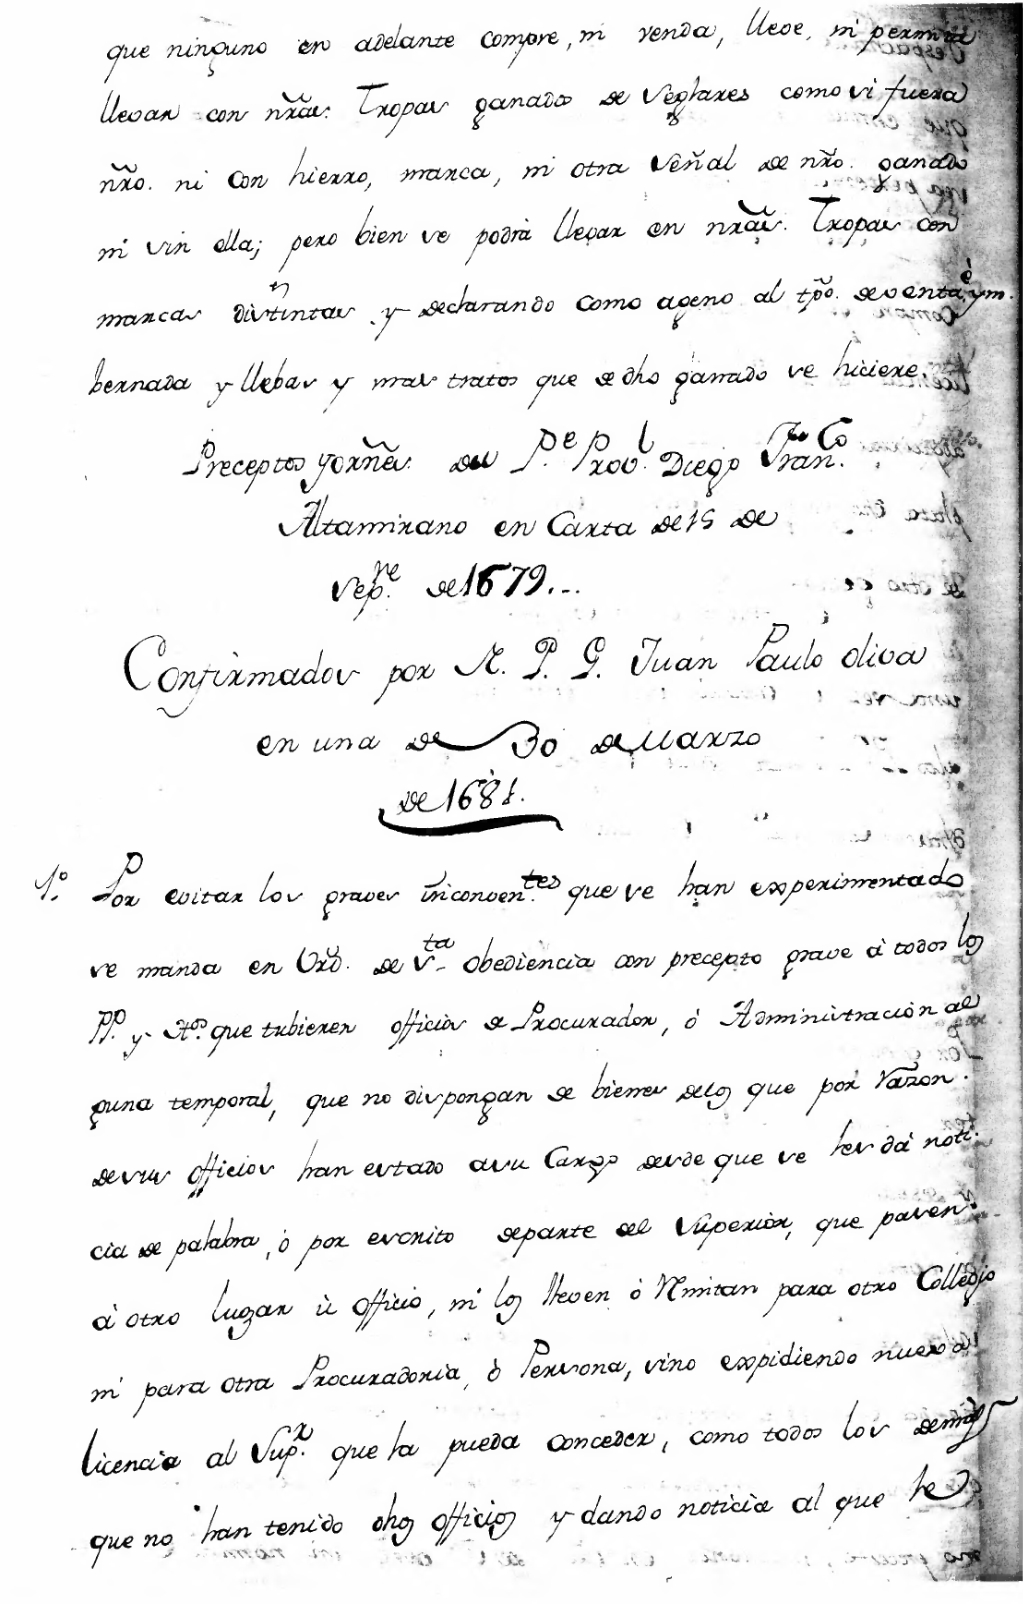 que ninguno en adelante compre, ni venda, lleve, ni permita
llevar con nrãs. Tropas ganados de seglares como si fuera
nrõ. ni con hierro, marca, ni otra señal de nrõ. ganado
ni sin ella; pero bien se podrà llevar en nrãs. Tropas con
marcas distintas y declarando como ageno al tpõ. de venta, ò ym.
bernada y llebas y mas tratos que de dho ganado se hiciere.
Preceptos y ornes. del P.e Prov.l Diego Fran.co
Altamirano en Carta de 15 de
Sep.re de 1679...
Confirmados por N. P. G. Juan Paulo oliva
en una de 30 de Marzo
de 1681.
1.o Por evitar los graves inconven.tes que se han experimentado
se manda en Ord. de s.ta obediencia con precepto grave à todos los
PP. y H.os que tubieren officios de Procurador, ò Administraciòn al
guna temporal, que no dispongan de bienes delos que por razon
de sus officios han estado a su Cargo desde que se les dà noti.
cia de palabra, ò por escrito de parte del Superior, que pasen
à otro lugar ù officio, ni los lleven ò remitan para otro Collegio
ni para otra Procuradoria, ò Persona, sino expidiendo nueva
licencia al Sup.r que la pueda conceder, como todos los demàs
que no han tenido dhos officios y dando noticia al que le